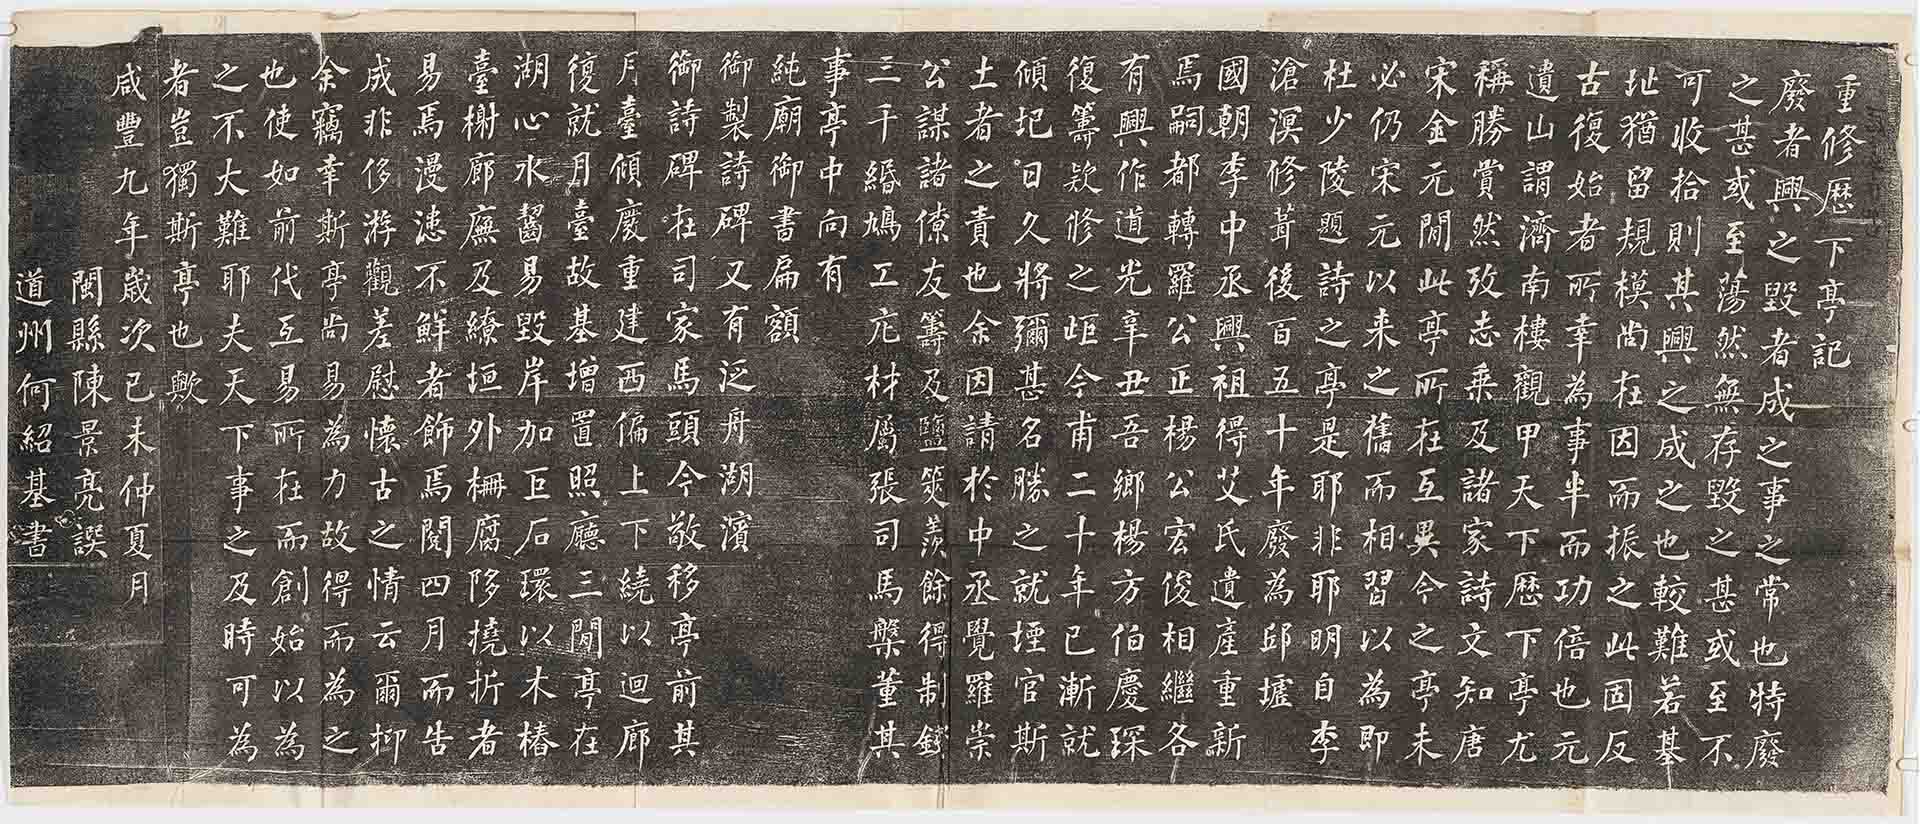 重修歷下亭記
廢者興之毀者成之事之常也特廢
之甚或至蕩然無存毀之甚或至不
可收拾則其興之成之也較難若基
址猶留規模尚在因而振之此固反
古復始者所幸為事半而功倍也元
遺山謂濟南樓觀甲天下歷下亭尤
稱勝賞然攷志乘及諸家詩文知唐
宋金元閒此亭所在互異今之亭未
必仍宋元以來之舊而相習以為即
杜少陵題詩之亭是耶非耶明自李
滄溟修葺後百五十年廢為邱墟
國朝李中丞興祖得艾氏遺產重新
焉嗣都轉羅公正楊公宏俊相繼各
有興作道光辛丑吾鄉楊方伯慶琛
復籌款修之距今甫二十年已漸就
傾圮日久將彌甚名勝之就堙官斯
土者之責也余因請於中丞覺羅崇
公謀諸僚友籌及鹽筴羨餘得制錢
三千緡鳩工庀材屬張司馬槃董其
事亭中向有
純廟御書扁額
御製詩碑又有泛舟湖濱
御詩碑在司家馬頭今敬移亭前其
月臺傾廢重建西偏上下繞以迴廊
復就月臺故基增置照廳三閒亭在
湖心水齧易毀岸加巨石環以木樁
臺榭廊廡及繚垣外柵腐陊撓折者
易焉漫漶不鮮者飾焉閱四月而告
成非侈游觀差慰懷古之情云爾抑
余竊幸斯亭尚易為力故得而為之
也使如前代互易所在而創始以為
之不大難耶夫天下事之及時可為
者豈獨斯亭也歟
咸豐九年歲次己未仲夏月
閩縣陳景亮譔
道州何紹基書